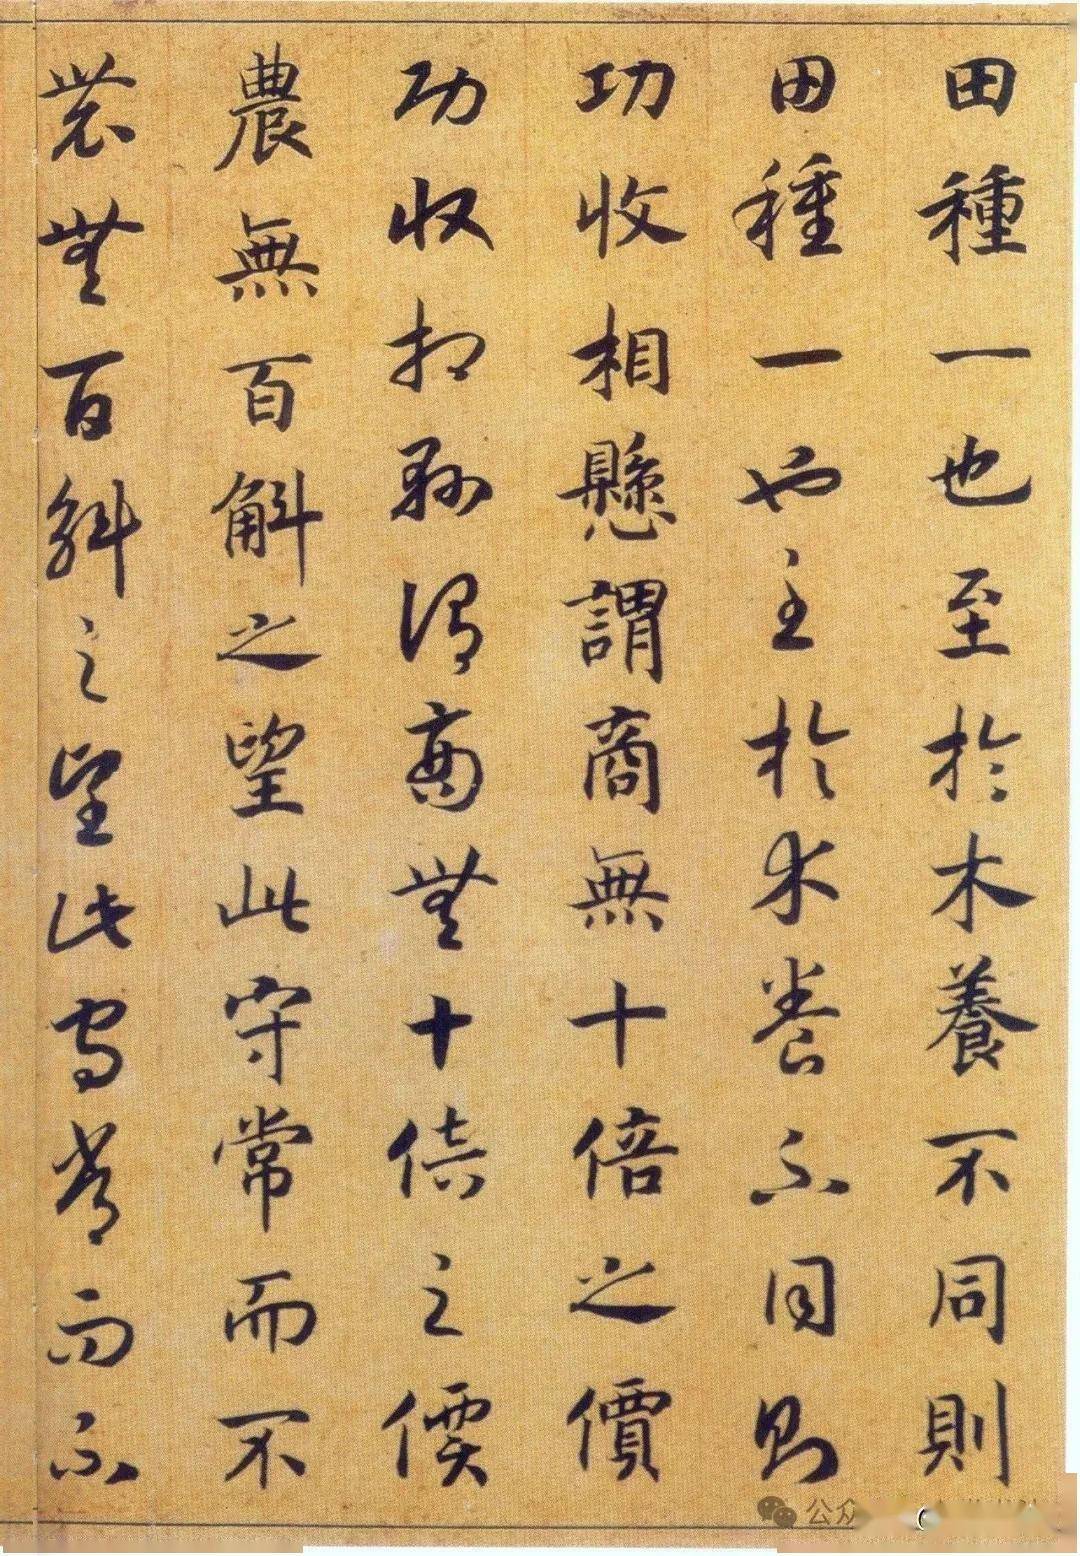 田種一也至於木養不同則
田種一也至於水養不同則
功收相懸謂商無十倍之價
功收相懸謂商無十倍之價
農無百斛之望此守常而不
農無百斛之望此守常而不
公众